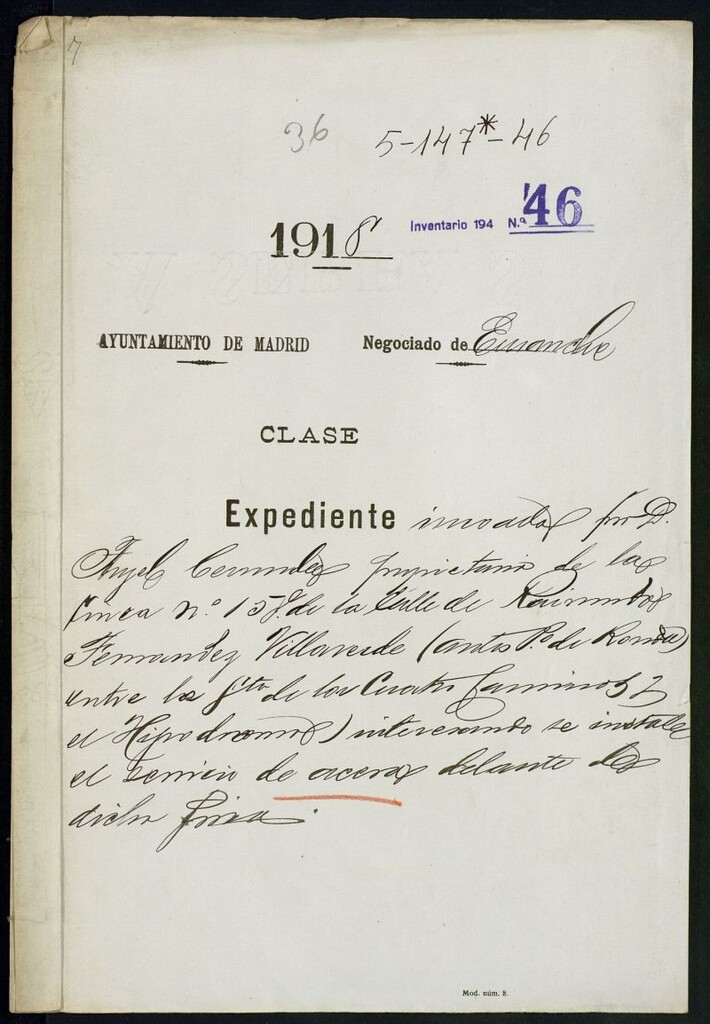 7
36
5-147*-46
Inventario 194 N.º 46
1918
AYUNTAMIENTO DE MADRID Negociado de Ensanche
CLASE
Expediente incoado por D.
Angel propietario de la
finca nº 158 de la Calle de Raimundo
Fernandez Villaverde (antes Pº de Ronda)
entre la gta de los Cuatro Caminos y
el Hipodromo) interesando se instale
el servicio de acera delante de
dicha finca.
Mod. núm. 8.